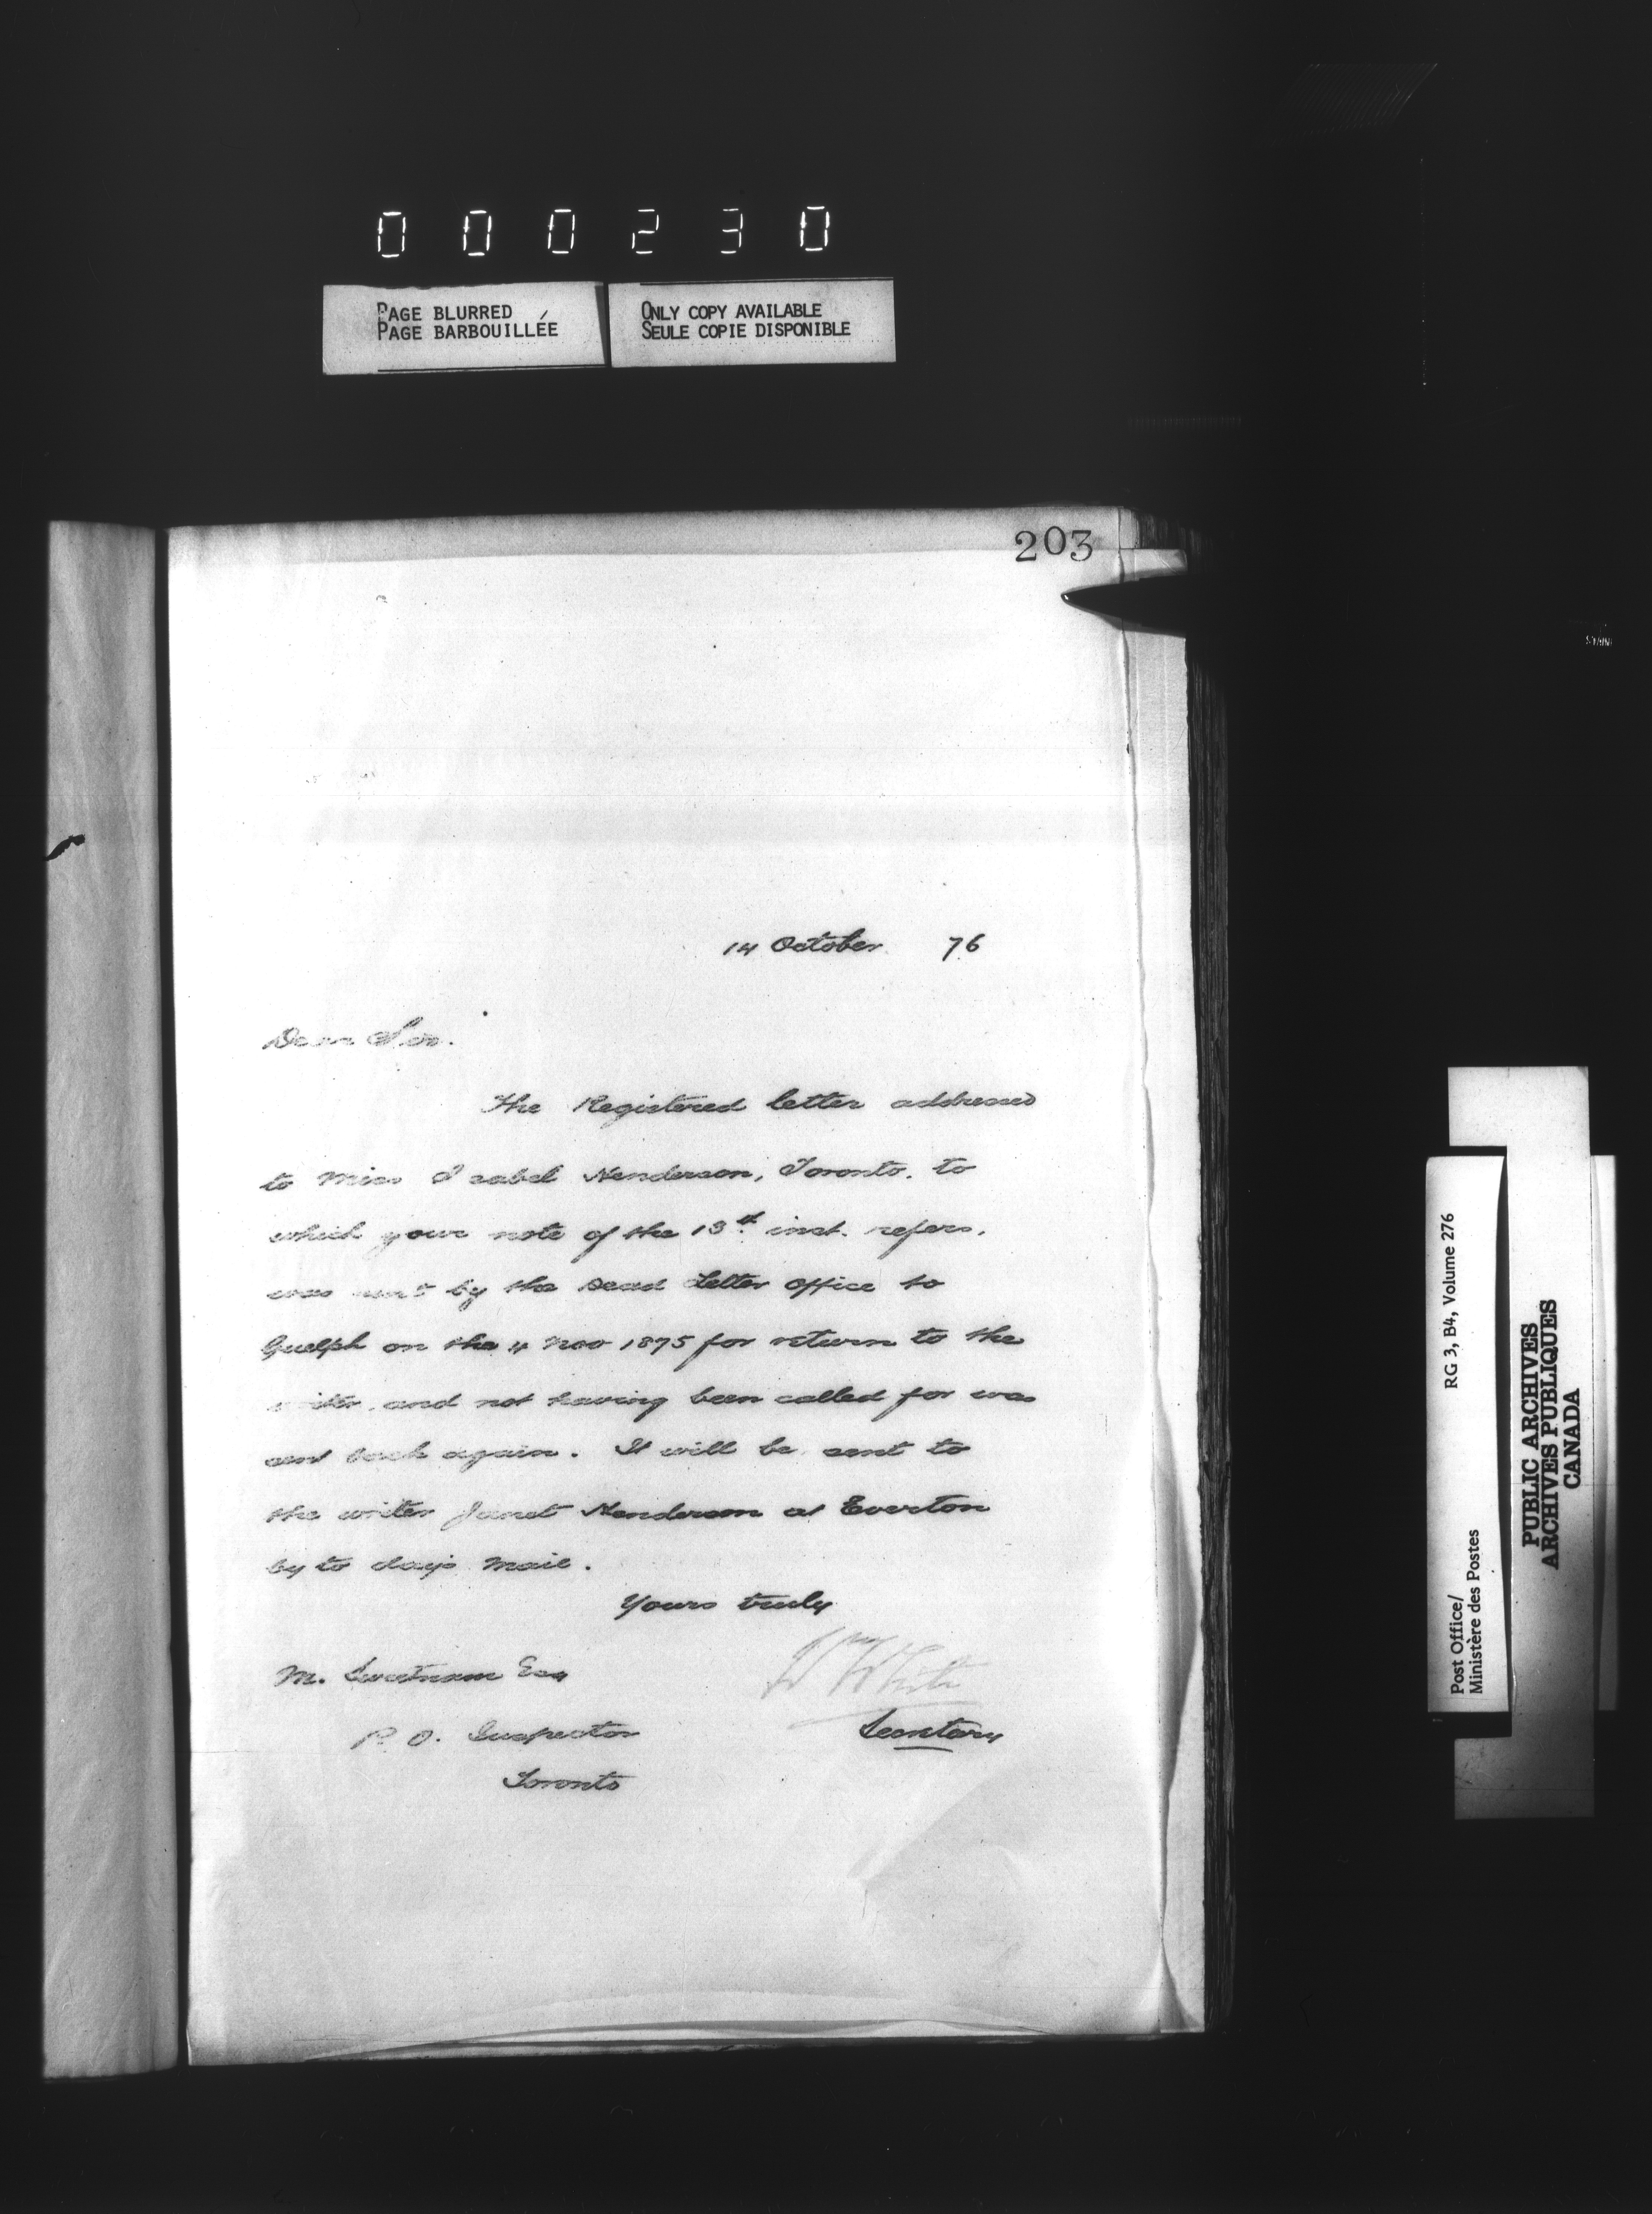 000230
PAGE BLURRED
PAGE BARBOUILLÉE
ONLY COPY AVAILABLE
SEULE COPIE DISPONIBLE
203
14 October 76
Dear Sir.
The Registered letter addressed
to Miss Isabel Henderson, Toronto, to
which your note of the 13th inst. refers,
was sent by the Dead Letter Office to
Guelph on the 4 Nov 1875 for return to the
writer, and not having been called for was
sent back again. It will be sent to
the writer Janet Henderson at Everton
by to days mail.
Yours truly
W White
Secretary
M. Sweetnam Esq
P. O. Inspector
Toronto
Post Office/
Ministère des Postes
RG 3, B4, Volume 276
PUBLIC ARCHIVES
ARCHIVES PUBLIQUES
CANADA